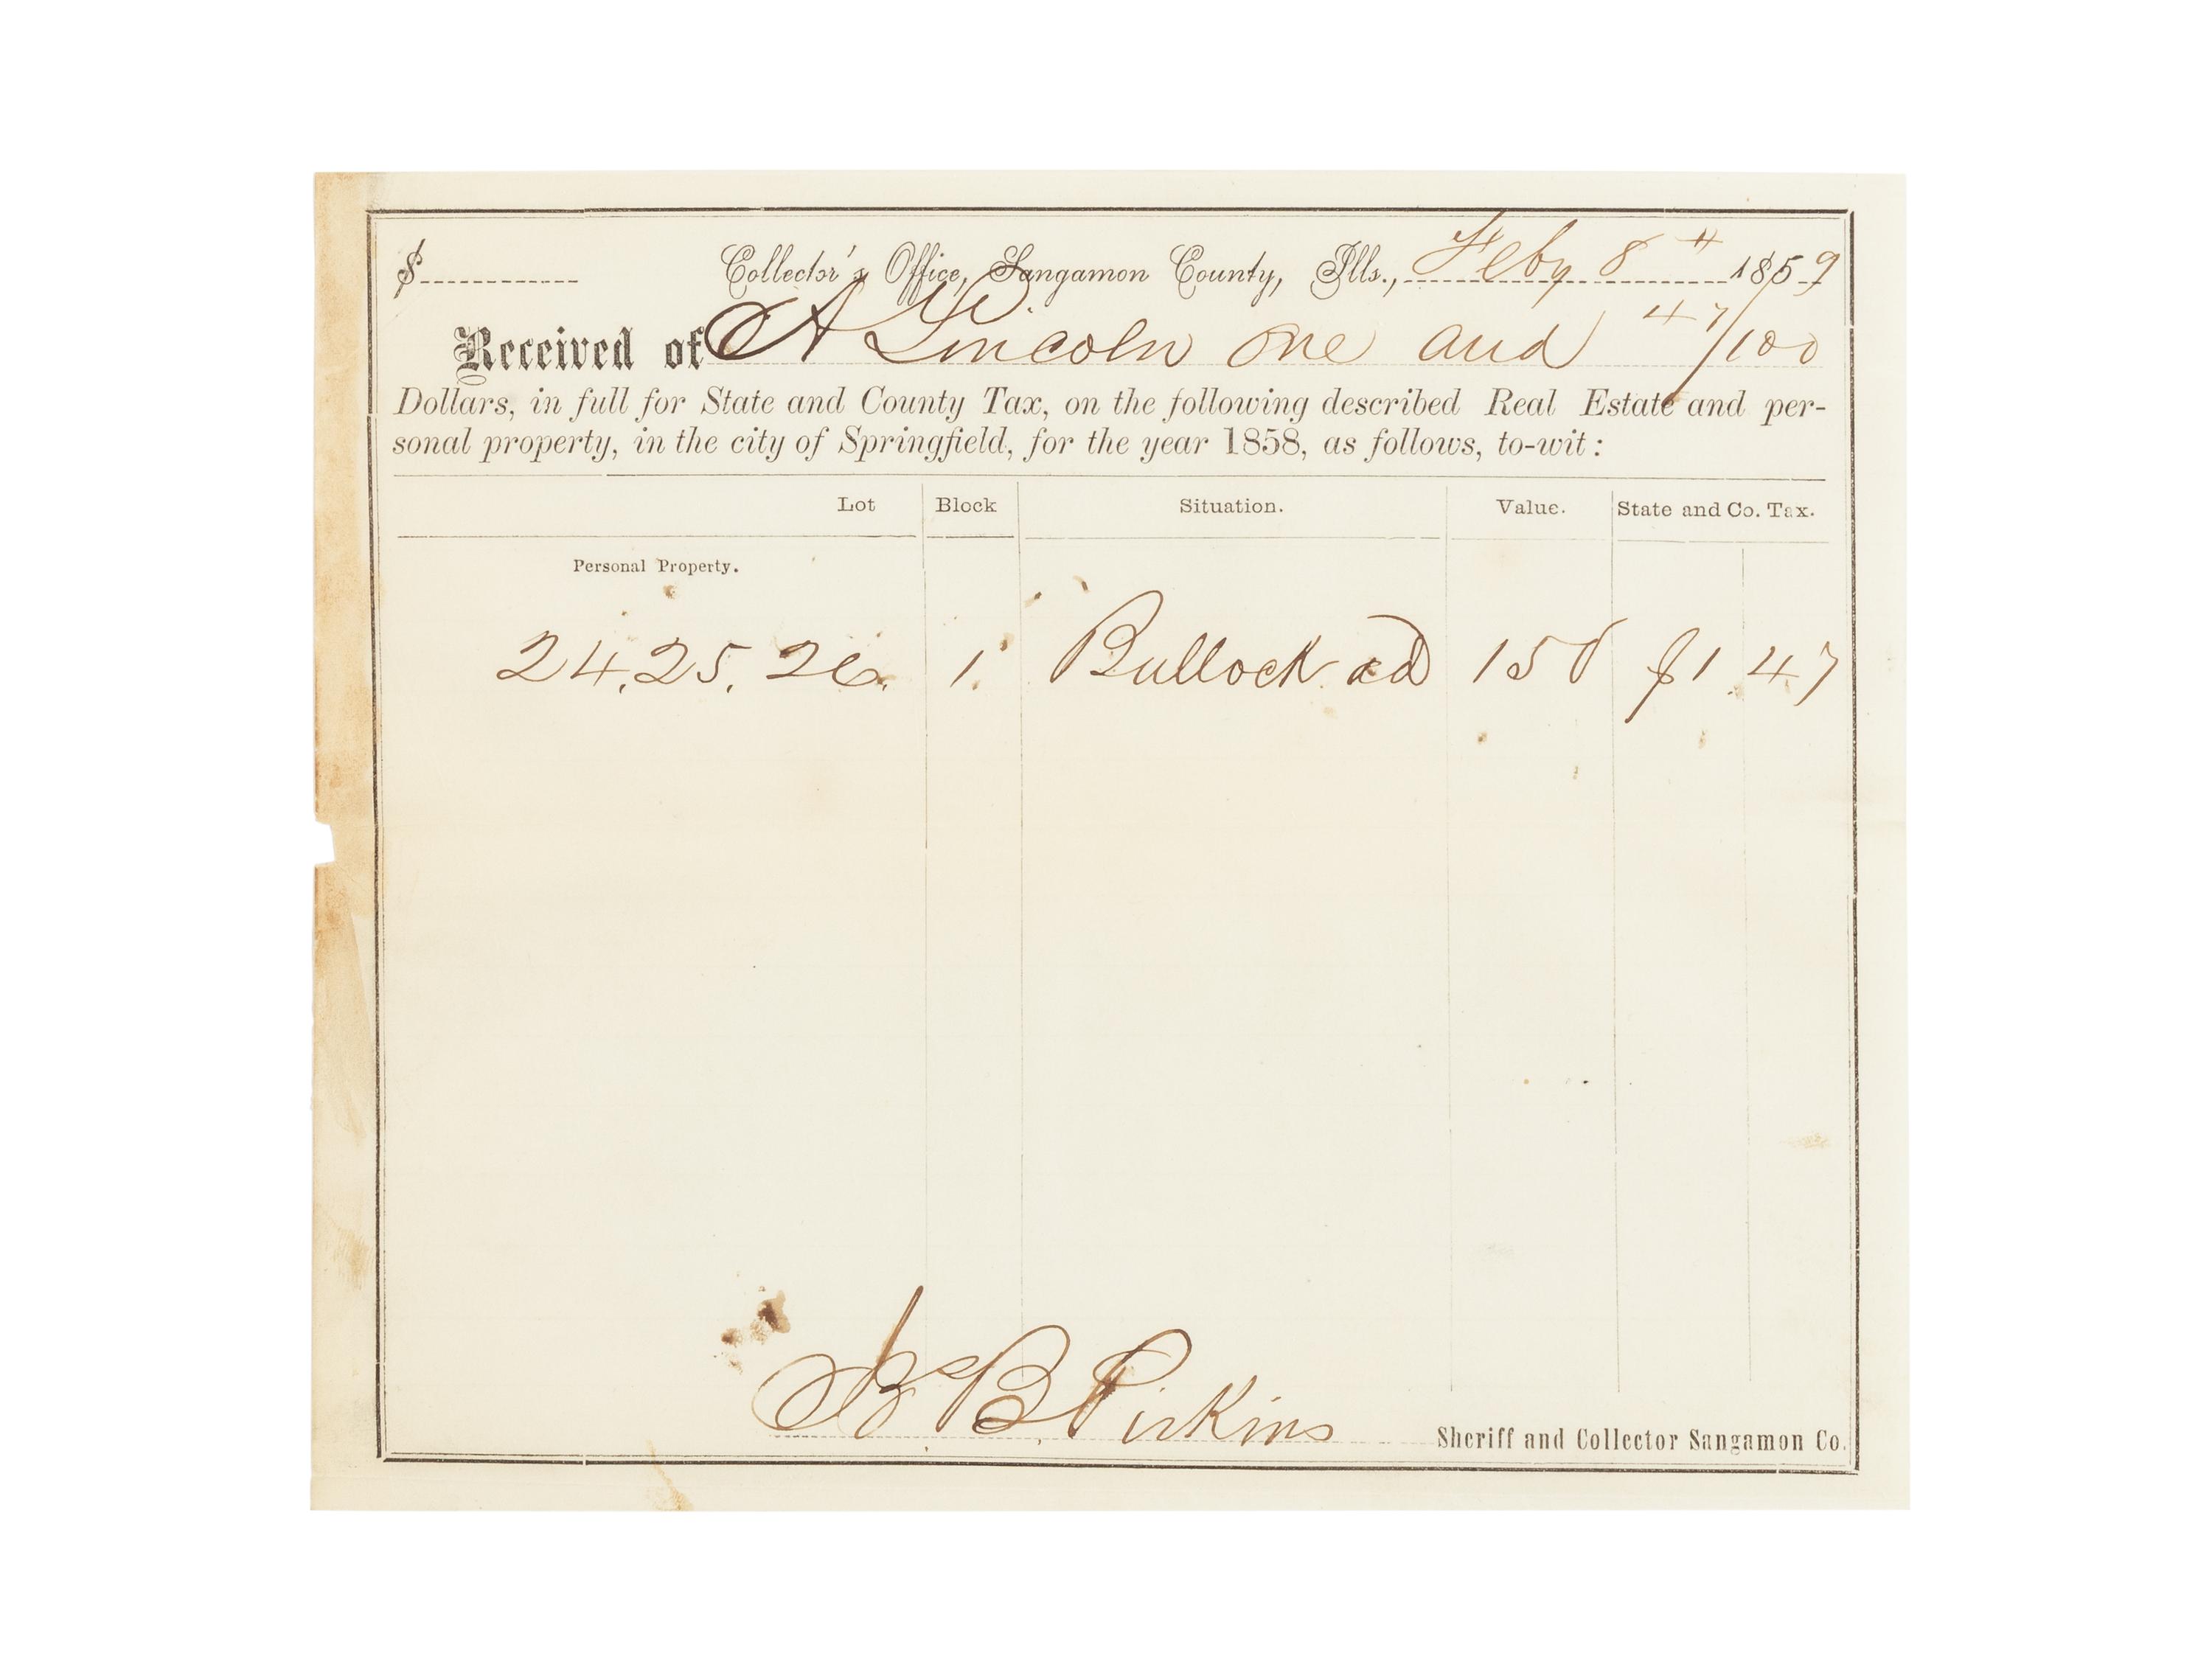 $ Collector's Office, Sangamon County, Ills., Feby 8th 1859
Received of A Lincoln one and 47/100
Dollars, in full for State and County Tax, on the following described Real Estate and per-
sonal property, in the city of Springfield, for the year 1858, as follows, to-wit:
Lot Block Situation. Value. State and Co. Tax.
Personal Property.
24, 25, 26. 1. Bullock ad 150 $1 47
B Pirkins Sheriff and Collector Sangamon Co.